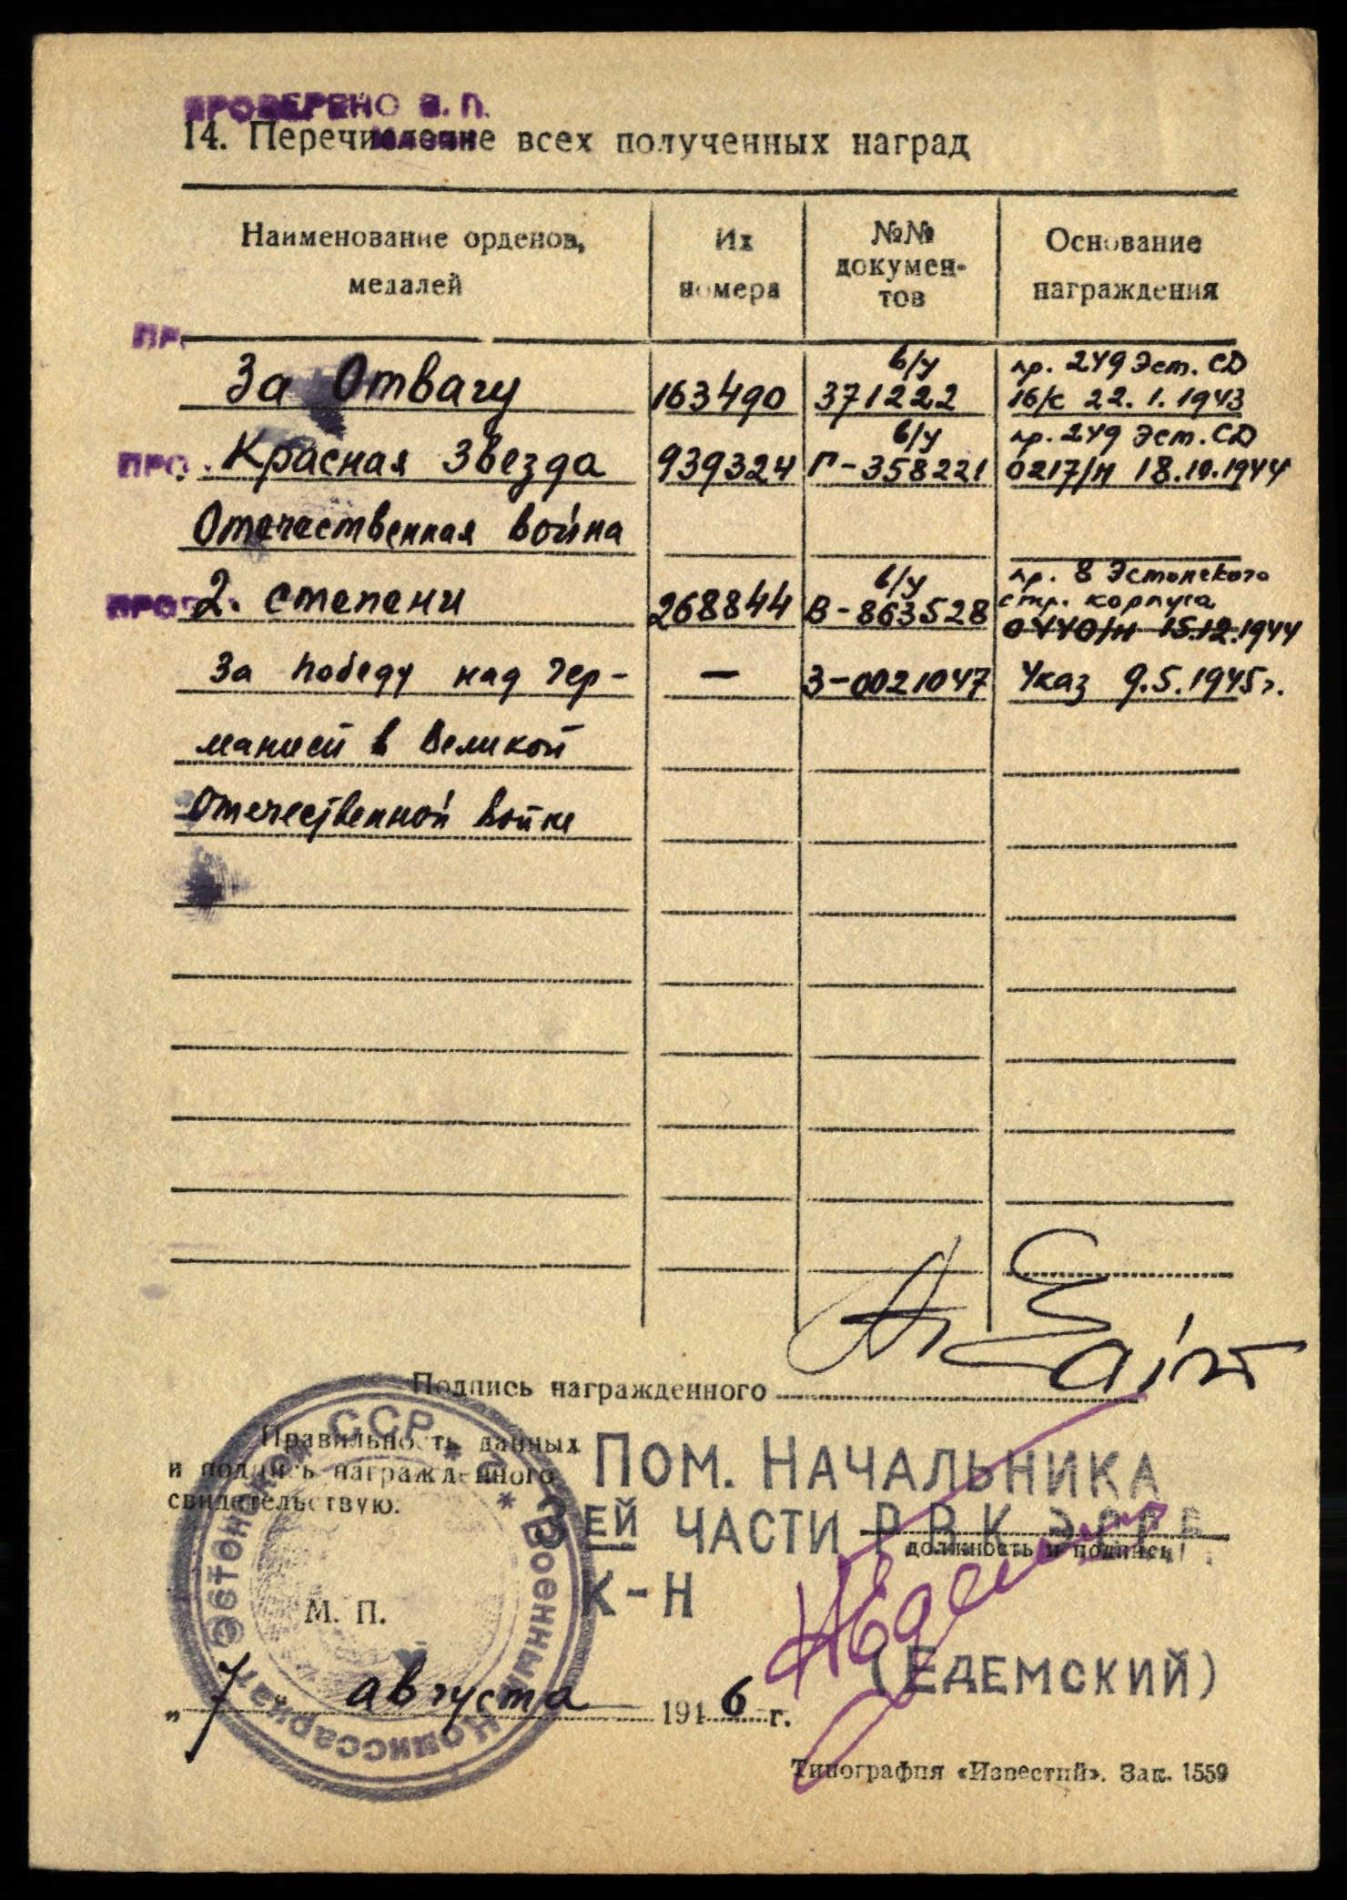 ПРОВЕРЕНО В. П.
14. Перечисление всех полученных наград
Наименование орденов, медалей
Их номера
№№ докумен-
тов
Основание награждения
ПР
За Отвагу 163490 в/у 371222 пр. 249 Эст. СД
16/с 22.1.1943
ПРО Красная Звезда 939324 в/у Г-358221 пр. 249 Эст. СД
0217/н 18.10.1944
Отечественная война
ПРО 2. степени 268844 в/у В-863528 пр. 8 Эстонского
стр. корпуса
0440/н 15.12.1944
За победу над Гер- — З-0021047 Указ 9.5.1945г.
манией в Великой
Отечественной войне
Подпись награжденного
Правильность данных
и подпись награжденного
свидетельствую.
ПОМ. НАЧАЛЬНИКА
3ЕЙ ЧАСТИ РВК ЭССР
должность и подпись
К-Н
М. П.
(ЕДЕМСКИЙ)
„7 августа 1946 г.
Типография «Известий». Зак. 1559
Эстонская ССР * Военный Комиссариат